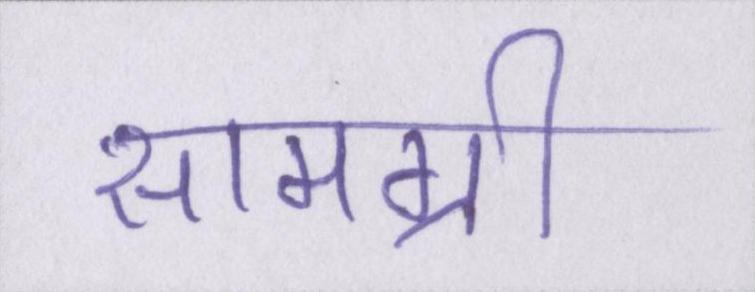 सामग्री